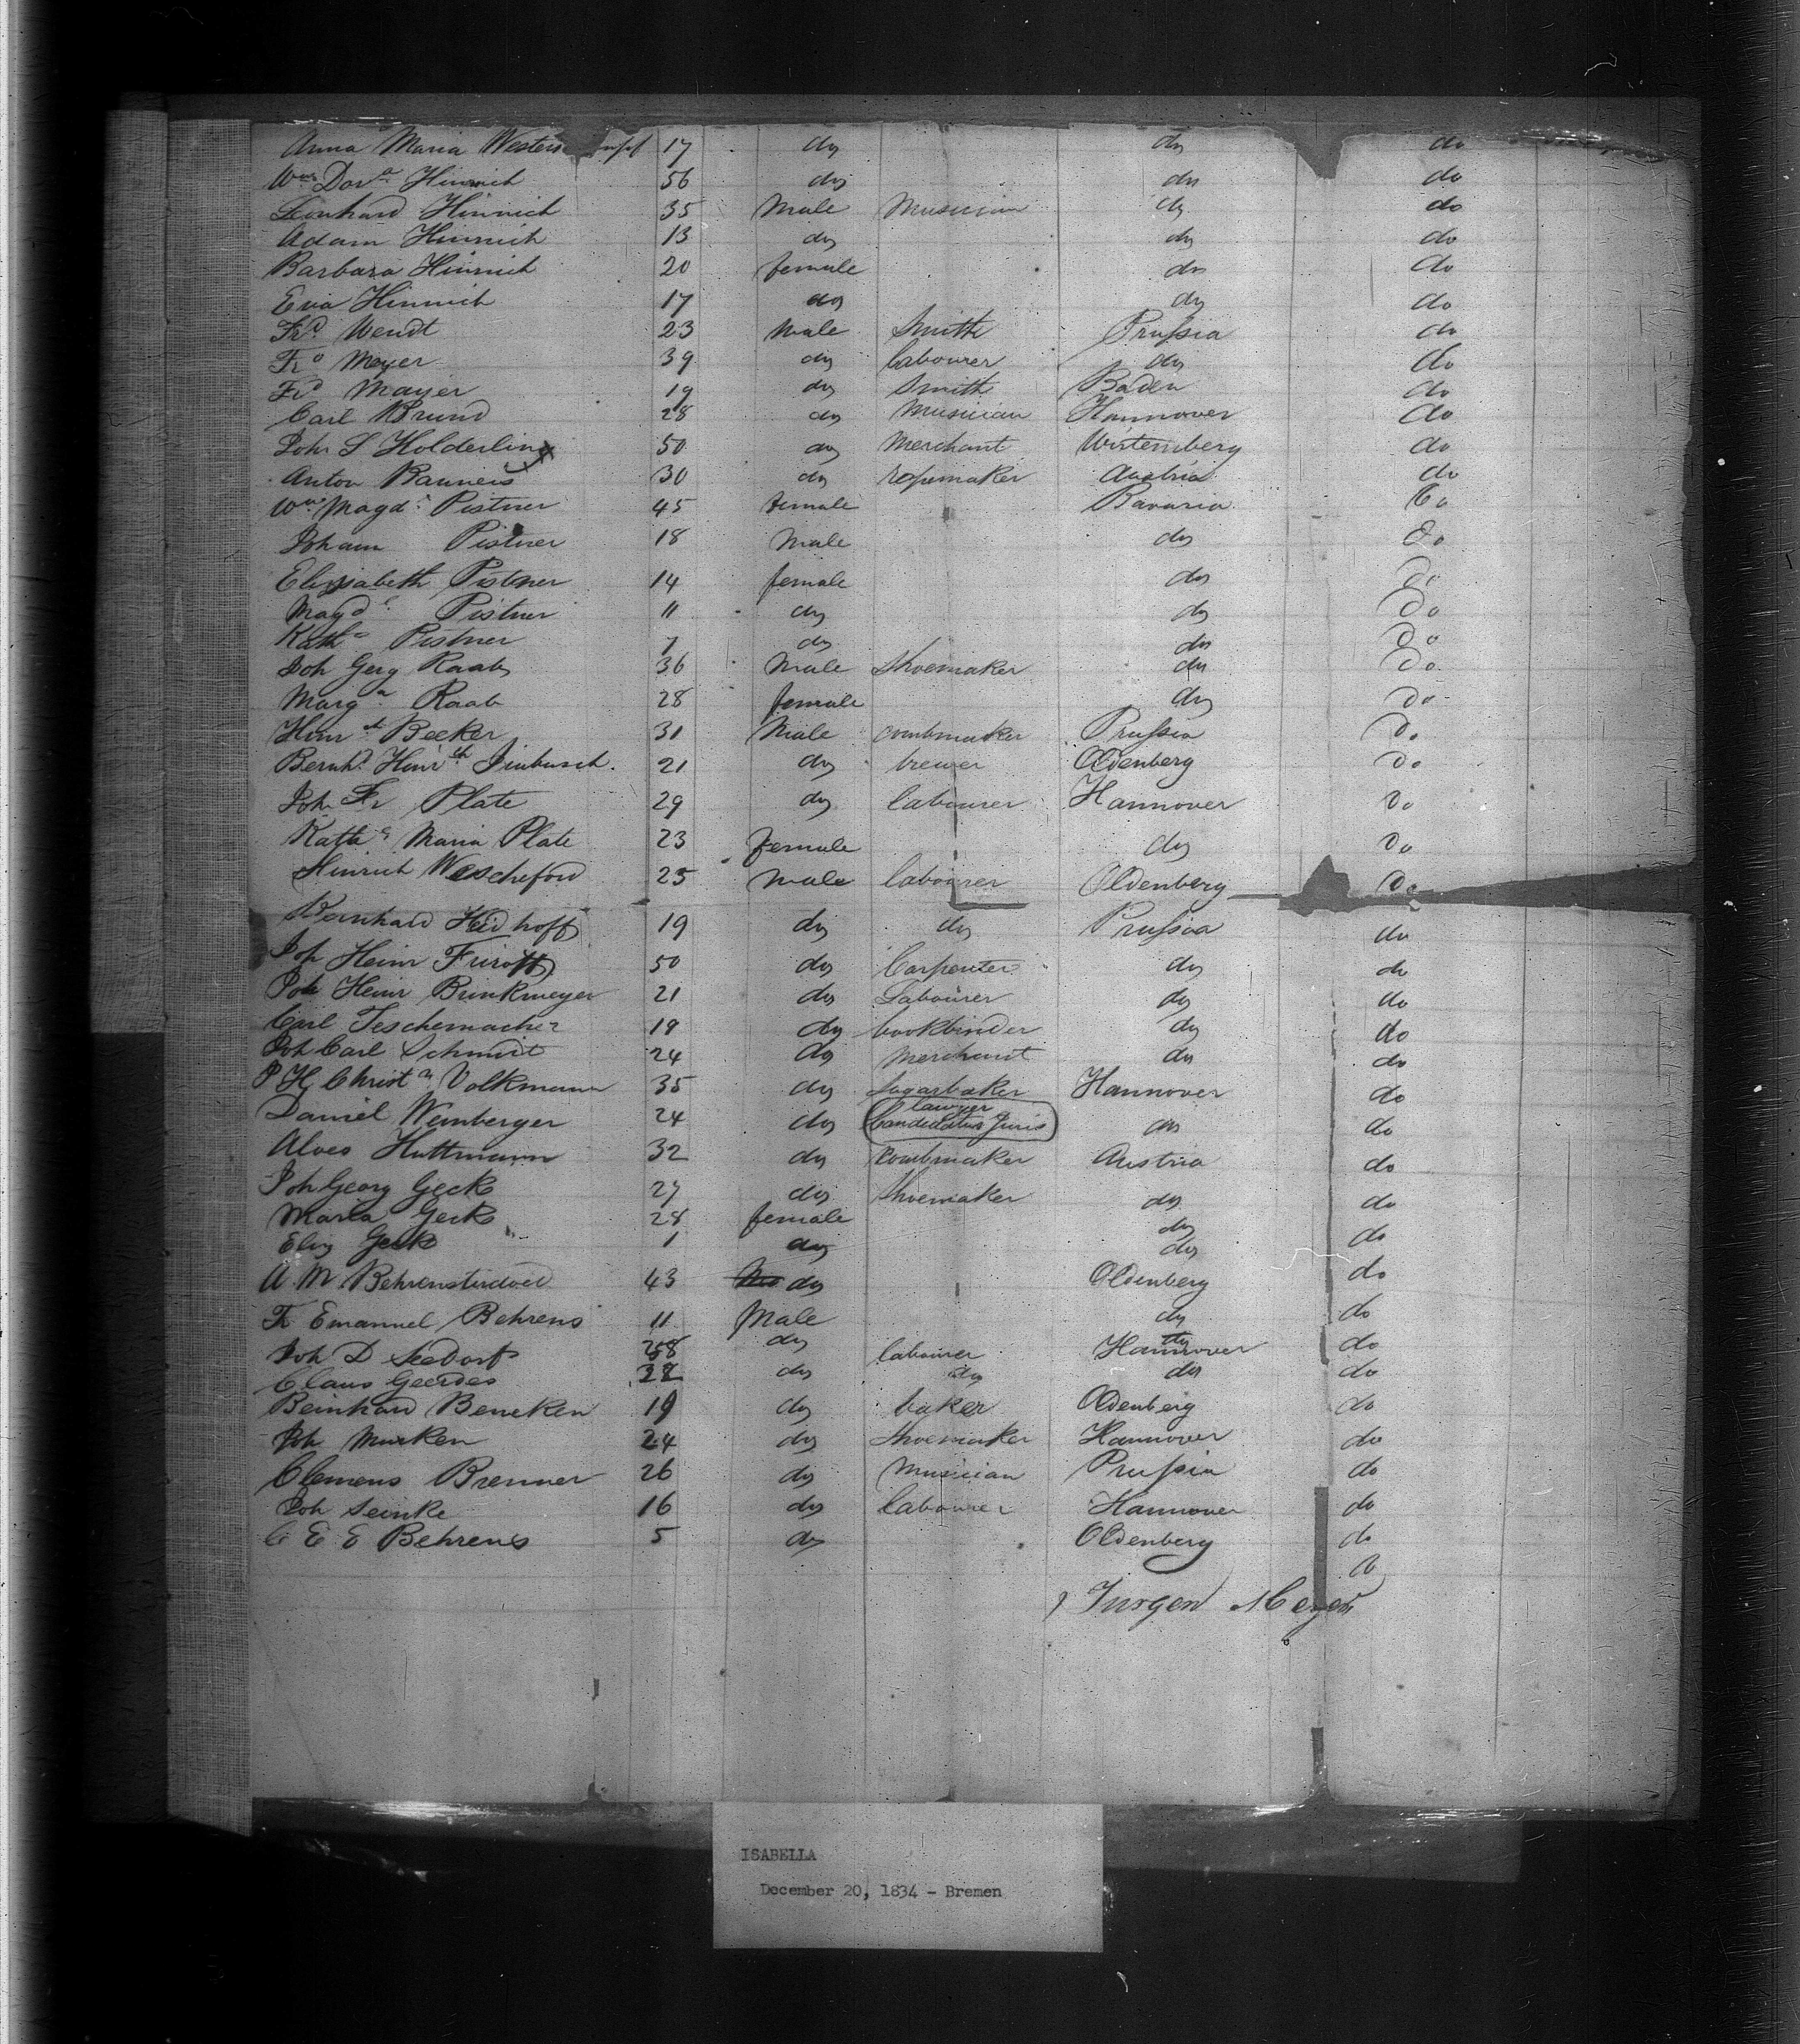 Anna Maria Westers 17 do do do
Wwe Dora Hinnich 56 do do do
Leonhard Hinnich 35 Male Musician do do
Adam Hinnich 13 do do do
Barbara Hinnich 20 female do do
Eva Hinnich 17 do do do
Frd. Wendt 23 Male Smith Prussia do
Frd Meyer 39 do labourer do do
Frd Mayer 19 do Smith Baden do
Carl Brund 28 do Musician Hannover do
Joh. S Holderling 50 do Merchant Würtemberg do
Anton Banneis 30 do ropemaker Austria do
Wwe Magda Pistner 45 female Bavaria Do
Johann Pistner 18 Male do Do
Elisabeth Pistner 14 female do Do
Magd. Pistner 11 do do Do
Kath. Pistner 7 do do Do
Joh Gerg Raab 36 Male Shoemaker do Do
Marga Raab 28 female do Do
Hinr Becker 31 Male combmaker Prussia Do
Bernhd. Hinrch 21 do brewer Oldenberg Do
Joh Fr Plate 29 do labourer Hannover Do
Katha Maria Plate 23 female do Do
Hinrich 25 Male labourer Oldenberg Do
Bernhard Heidhoff 19 do do Prussia do
Joh Heinr 50 do Carpenter do do
Joh Heinr Brinkmeyer 21 do Labourer do do
Carl Teschemacher 19 do bookbinder do do
Joh Carl Schmidt 24 do Merchant do do
P H Christn Volkmann 35 do Sugarbaker Hannover do
lawyer
Daniel Weinberger 24 do Candidatus Juris do do
Aloes Huttmann 32 do combmaker Austria do
Joh Georg Geck 27 do Shoemaker do do
Maria Geck 28 female do do
Eliz Geck 1 do do do
A M 43 do Oldenberg do
Fr Emanuel Behrens 11 Male do do
Joh D Seedorf 28 do labourer Hannover do
Claus Geerdes 32 do do do do
Beinhard Beneken 19 do baker Oldenberg do
Joh Murken 24 do Shoemaker Hannover do
Clemens Brenner 26 do Musician Prussia do
Joh Seinke 16 do labourer Hannover do
C E E Behrens 5 do Oldenberg do
Jurgen Meyer
ISABELLA
December 20, 1834 - Bremen